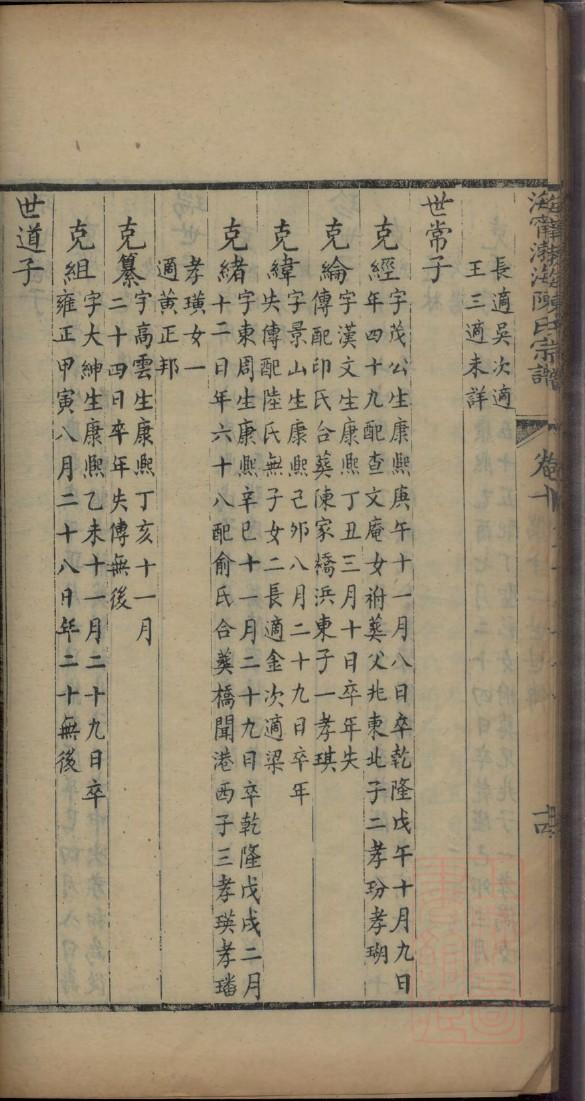 海甯渤海陳氏宗譜
卷十
長適吳次適
王三適未詳
世常子
克經
字茂公生康熙庚午十一月八日卒乾隆戊午十月九日
年四十九配查文庵女祔葬父兆東北子二孝玢孝瑚
克綸
字漢文生康熙丁丑三月十日卒年失
傳配印氏合葬陳家橋浜東子一孝琪
克緯
字景山生康熙己夘八月二十九日卒年
失傳配陸氏無子女二長適金次適梁
克緒
字東周生康熙辛巳十一月二十九日卒乾隆戊戌二月
十二日年六十八配俞氏合葬橋聞港西子三孝瑛孝璠
孝璜女一
適黃正邦
克纂
字高雲生康熙丁亥十一月
二十四日卒年失傳無後
克組
字大紳生康熙乙未十一月二十九日卒
雍正甲寅八月二十八日年二十無後
世道子